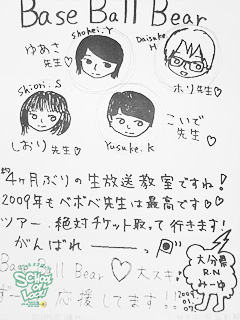 Base Ball Bear
Shohei.Y
Daisuke
H
ゆあさ
先生♡
ホリ先生♡
Shiori.S
しおり先生♡
こいで
先生♡
Yusuke.K
約4ヶ月ぶりの生放送教室ですね!
2009年もベボベ先生は最高です♡♡
ツアー、絶対チケット取って行きます!
がんばれーーーっ
大分県
R.N
みーゆ
Base Ball Bear ♡ 大スキ
応援してます!!
2009
01.
07
SCHOOL
OF
LOCK!